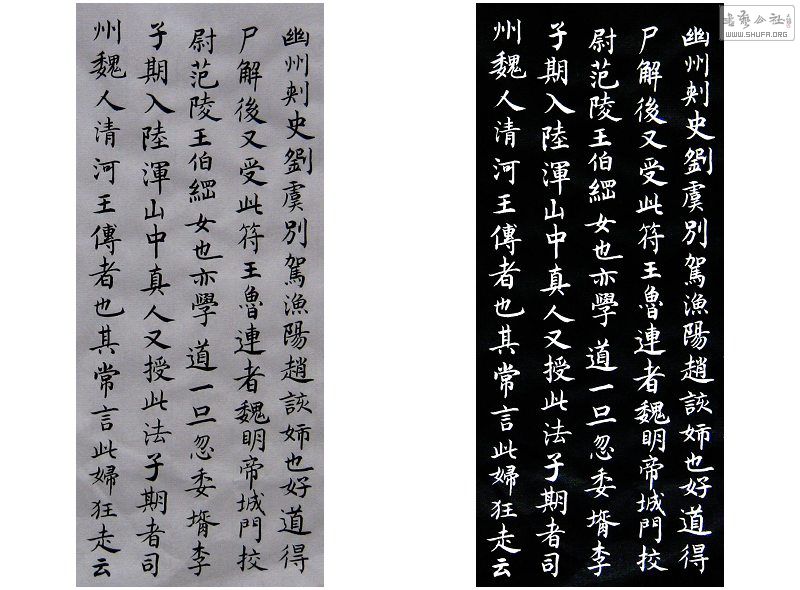 幽州刾史劉虞別駕漁陽趙該姉也好道得
尸解後又受此符王魯連者魏明帝城門挍
尉范陵王伯綑女也亦學道一旦忽委壻李
子期入陸渾山中真人又授此法子期者司
州魏人清河王傳者也其常言此婦狂走云
幽州刾史劉虞別駕漁陽趙該姉也好道得
尸解後又受此符王魯連者魏明帝城門挍
尉范陵王伯綑女也亦學道一旦忽委壻李
子期入陸渾山中真人又授此法子期者司
州魏人清河王傳者也其常言此婦狂走云
WWW.SHUFA.ORG